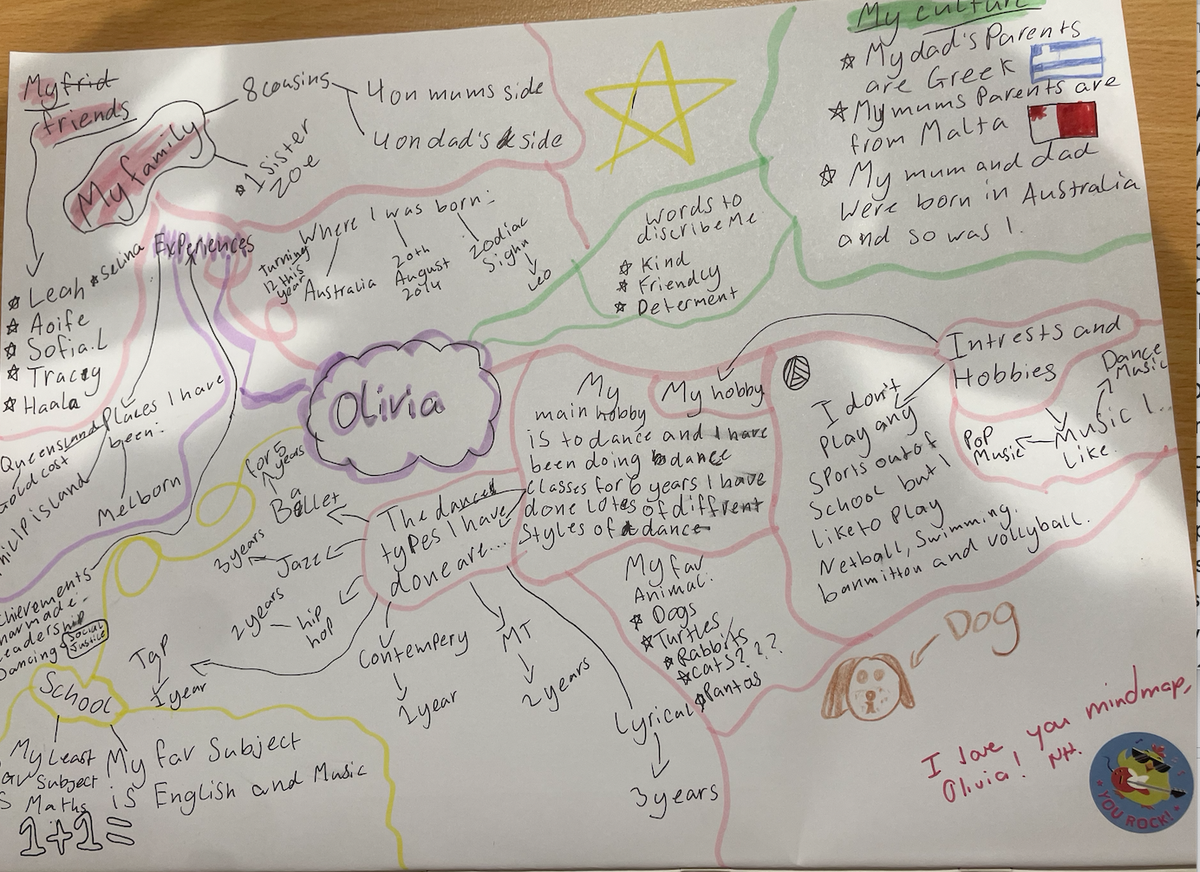 My frid
friends
My family
8 cousins
4 on mums side
4 on dad's side
☆ 1 Sister
Zoe
☆ Leah
☆ Selina
☆ Aoife
☆ Sofia.L
☆ Tracy
☆ Haala
Experiences
Turning
12 this
year
Where I was born:
Australia
20th
August
2014
Zodiac
Sighn
Leo
My culture
☆ My dad's Parents
are Greek
☆ My mums Parents are
from Malta
☆ My mum and dad
Were born in Australia
and so was I.
words to
discribe Me
☆ Kind
☆ Friendly
☆ Determent
Olivia
Places I have
been:
Queensland
Gold cost
Philip island
Melborn
My
main hobby
is to dance and I have
been doing dance
classes for 6 years I have
done lotes of diffrent
Styles of dance
My hobby
Intrests and
Hobbies
Music I..
like.
Pop
Music
Dance
Music
I don't
Play any
Sports out of
School but I
like to Play
Netball, Swimming.
banmitton and vollyball.
The dance
types I have
done are...
Ballet
for 5
years
Jazz
3 years
hip
hop
2 years
Tap
1 year
Contempery
1 year
MT
2 years
Lyrical
3 years
My fav
Animal.
☆ Dogs
☆ Turtles
☆ Rabbits
☆ Cats???
☆ Pandas
Dog
chievements
made:
Leadership
Dancing
Social
Justice
School
My Least
Subject
Maths
1+1=
My fav Subject
is English and Music
I love you mindmap,
Olivia! NH.
YOU ROCK!